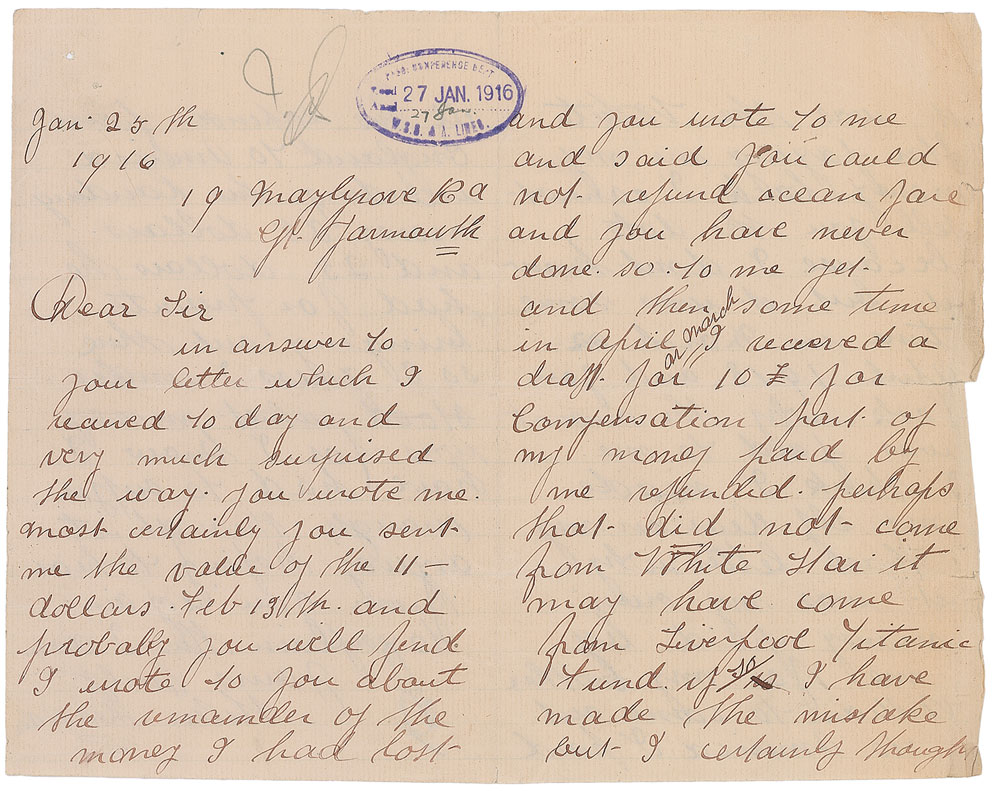 27 JAN. 1916
27 Jan
W.S.D. & A. LINES.
Jan 25 th
1916
19 Maygrove Rd
Gt. Yarmouth
Dear Sir
in answer to
your letter which I
receved to day and
very much surprised
the way. you wrote me.
most certainly you sent
me the value of the 11 –
dollars. Feb 13 th. and
probably you will find
I wrote to you about
the remainder of the
money I had lost
and you wrote to me
and said you could
not refund ocean fare
and you have never
done. so. to me yet.
and then some time
in April or march I receved a
draft. for 10 £ for
Compensation part of
my money paid by
me refunded. perhaps
that did not come
from White Star it
may have come
from Liverpool Titanic
Fund. if so I have
made the mistake
but I certainly though